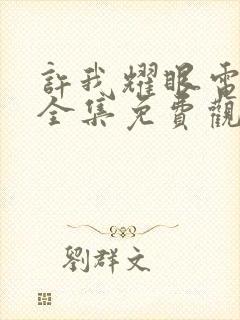 許我耀眼電
全集免費觀
劉群文